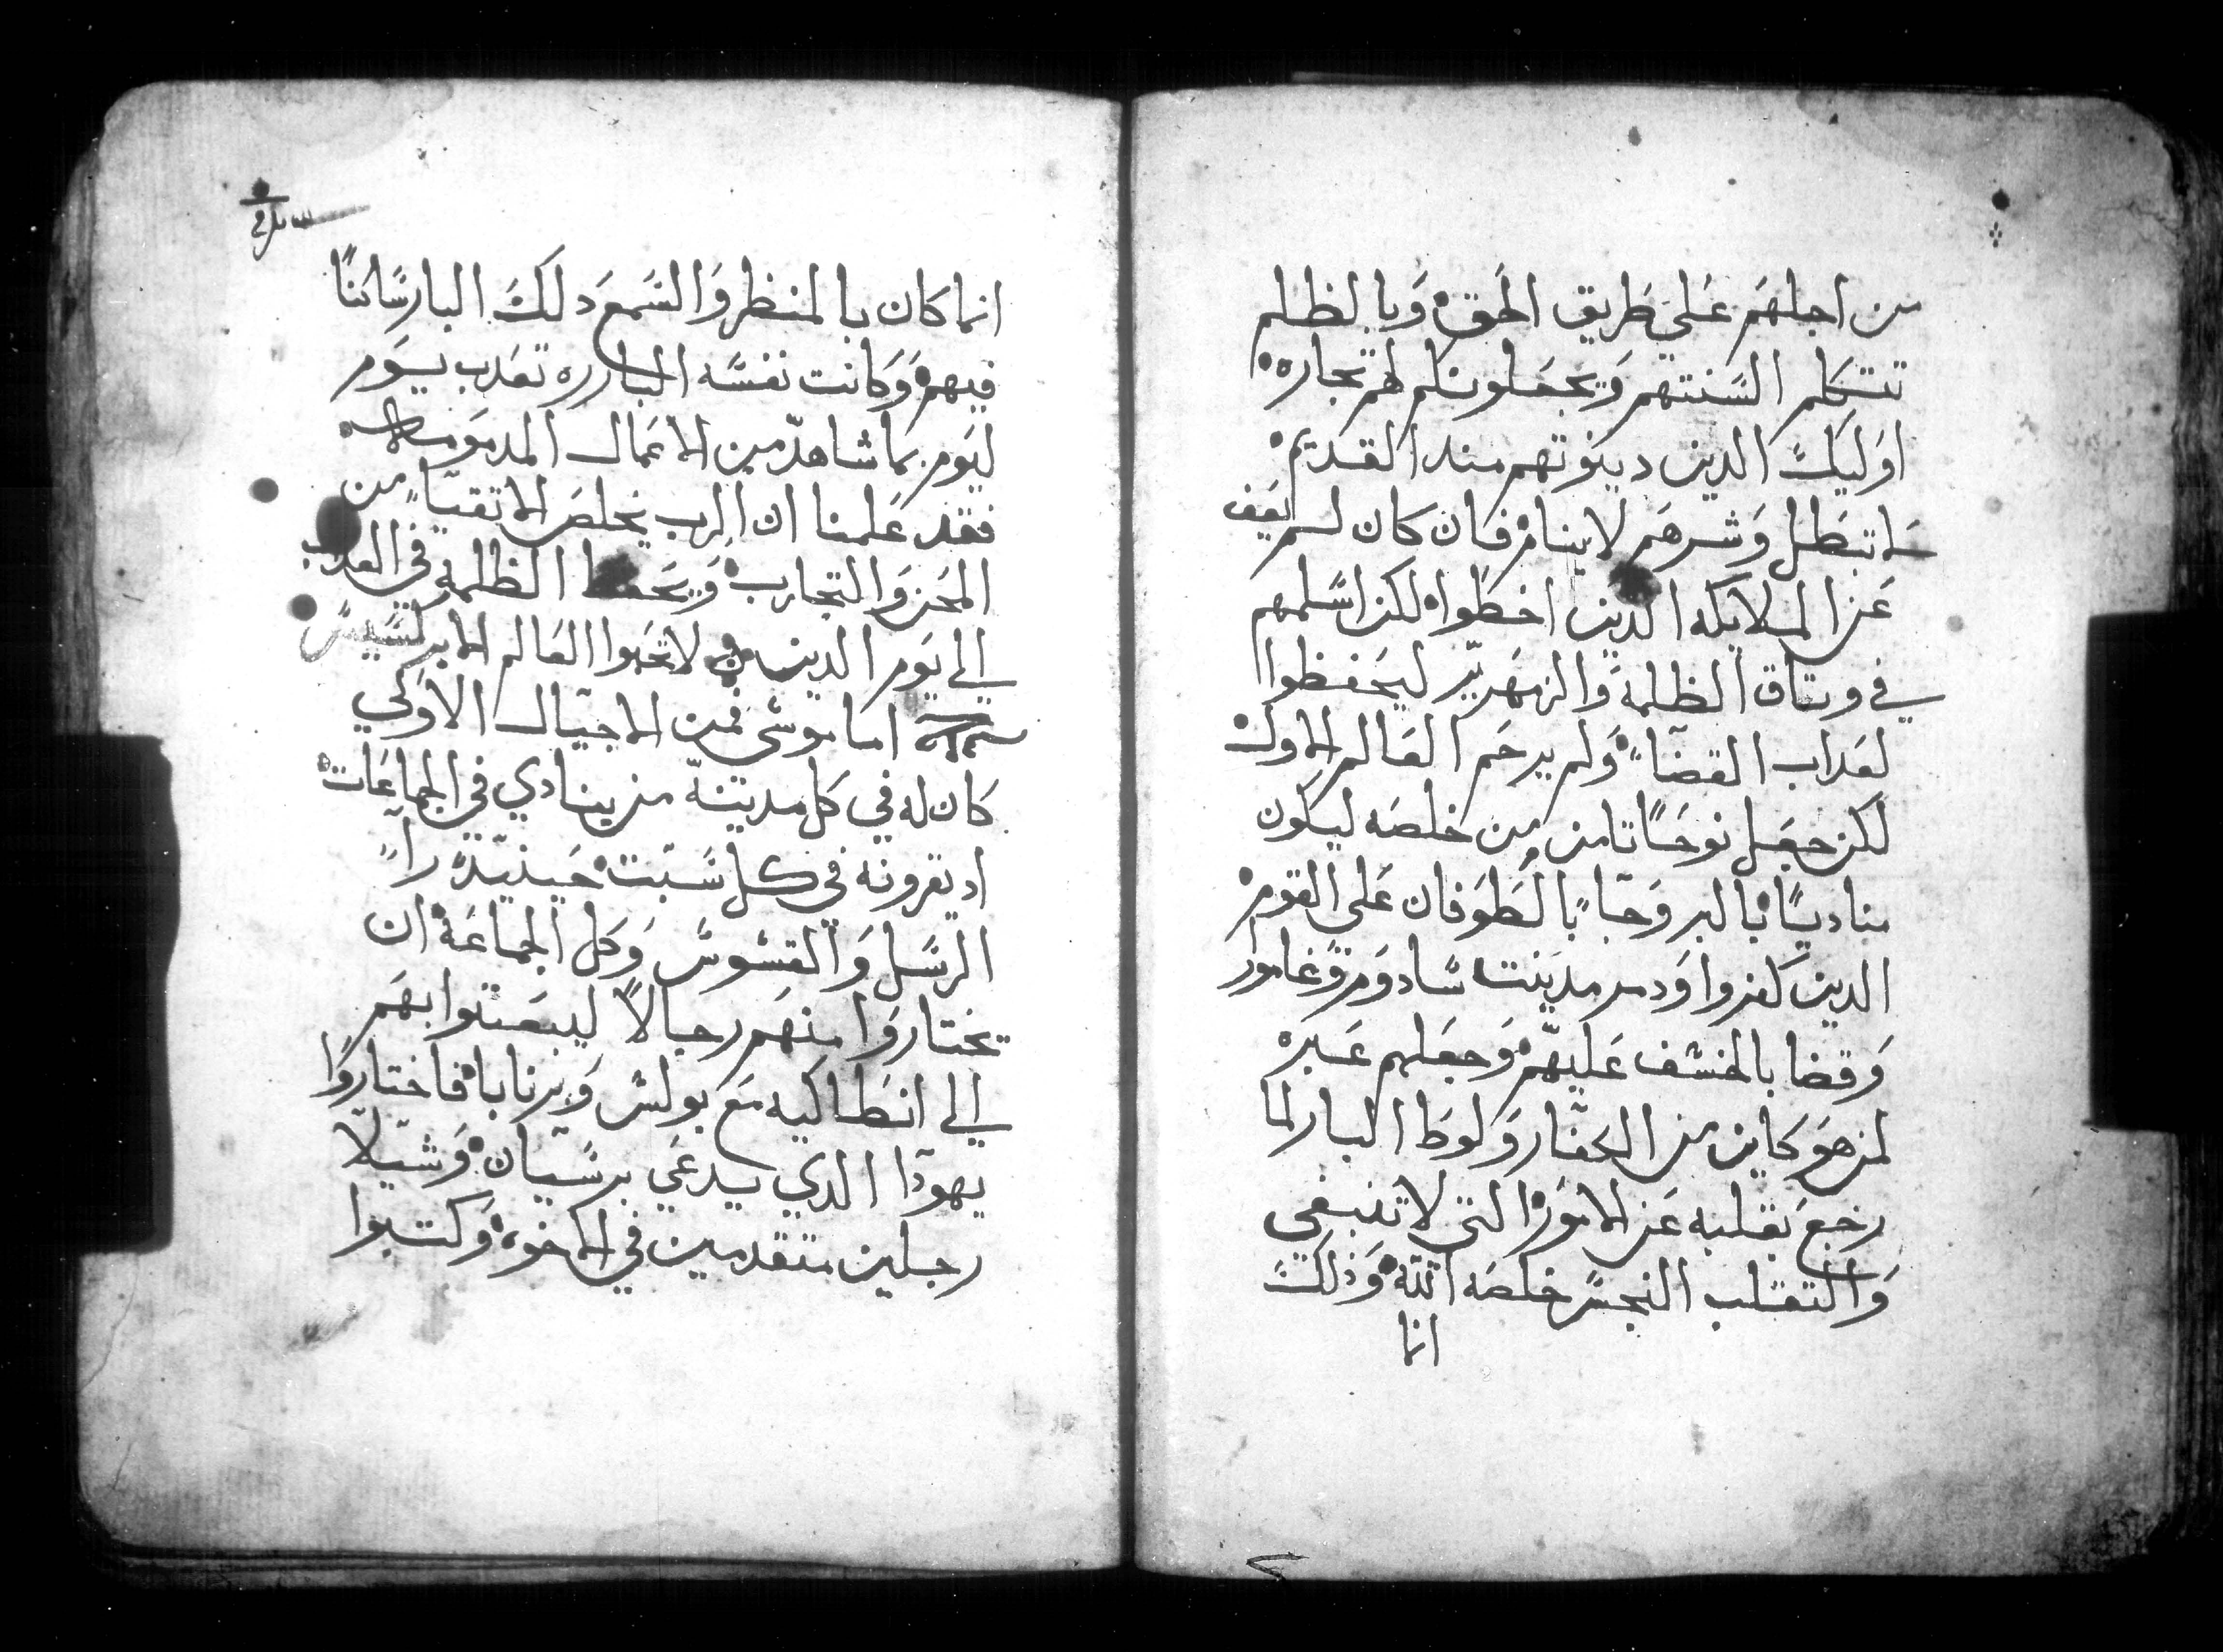 من اجلهم على طريق الحق وبالظلم
تتكلم السنتهم ويجعلونكم لهم تجاره
اوليك الدين دينونتهم مند القديم
لا تبطل وشرهم لا ينام فان كان لم يعف
عن الملايكه الدين اخطوا لكن اسلمهم
في وتاق الظلمة والزمهرير ليحفظوا
لعداب القضاء ولم يرحم العالم الاول
لكن جعل نوحًا تامن من خلصه ليكون
مناديًا بالبر وجاء بالطوفان على القوم
الدين كفروا ودمر مدينت سادوم وغامور
وقضا بالخسف عليهم وجعلهم عبرة
لمن هو كاين من الكفار ولوط البار لما
رجع بقلبه عن الامور التي لا تنبغي
والتقلب النجس خلصه الله وذلك
انما
انما كان بالمنظر والسمع دلك البار ساكنًا
فيهم وكانت نفسه الباره تعدب يوم
ليوم بما شاهد من الاعمال المدمومه
فقد علمنا ان الرب يخلص الاتقياء من
المحن والتجارب ويحفظ الظلمة في العداب
الي يوم الدين لا تحبوا العالم الابركسيس
اما موسى فمن الاجيال الاولي
كان له في كل مدينة من ينادي في الجماعات
اد يقرونه في كل سبت حينيد راء
الرسل والقسوس وكل الجماعة ان
يختاروا منهم رجالاً ليبعتوا بهم
الي انطاكيه مع بولس وبرنابا فاختاروا
يهودا الدي يدعي برسيان وشيلا
رجلين متقدمين في الاخوه وكتبوا